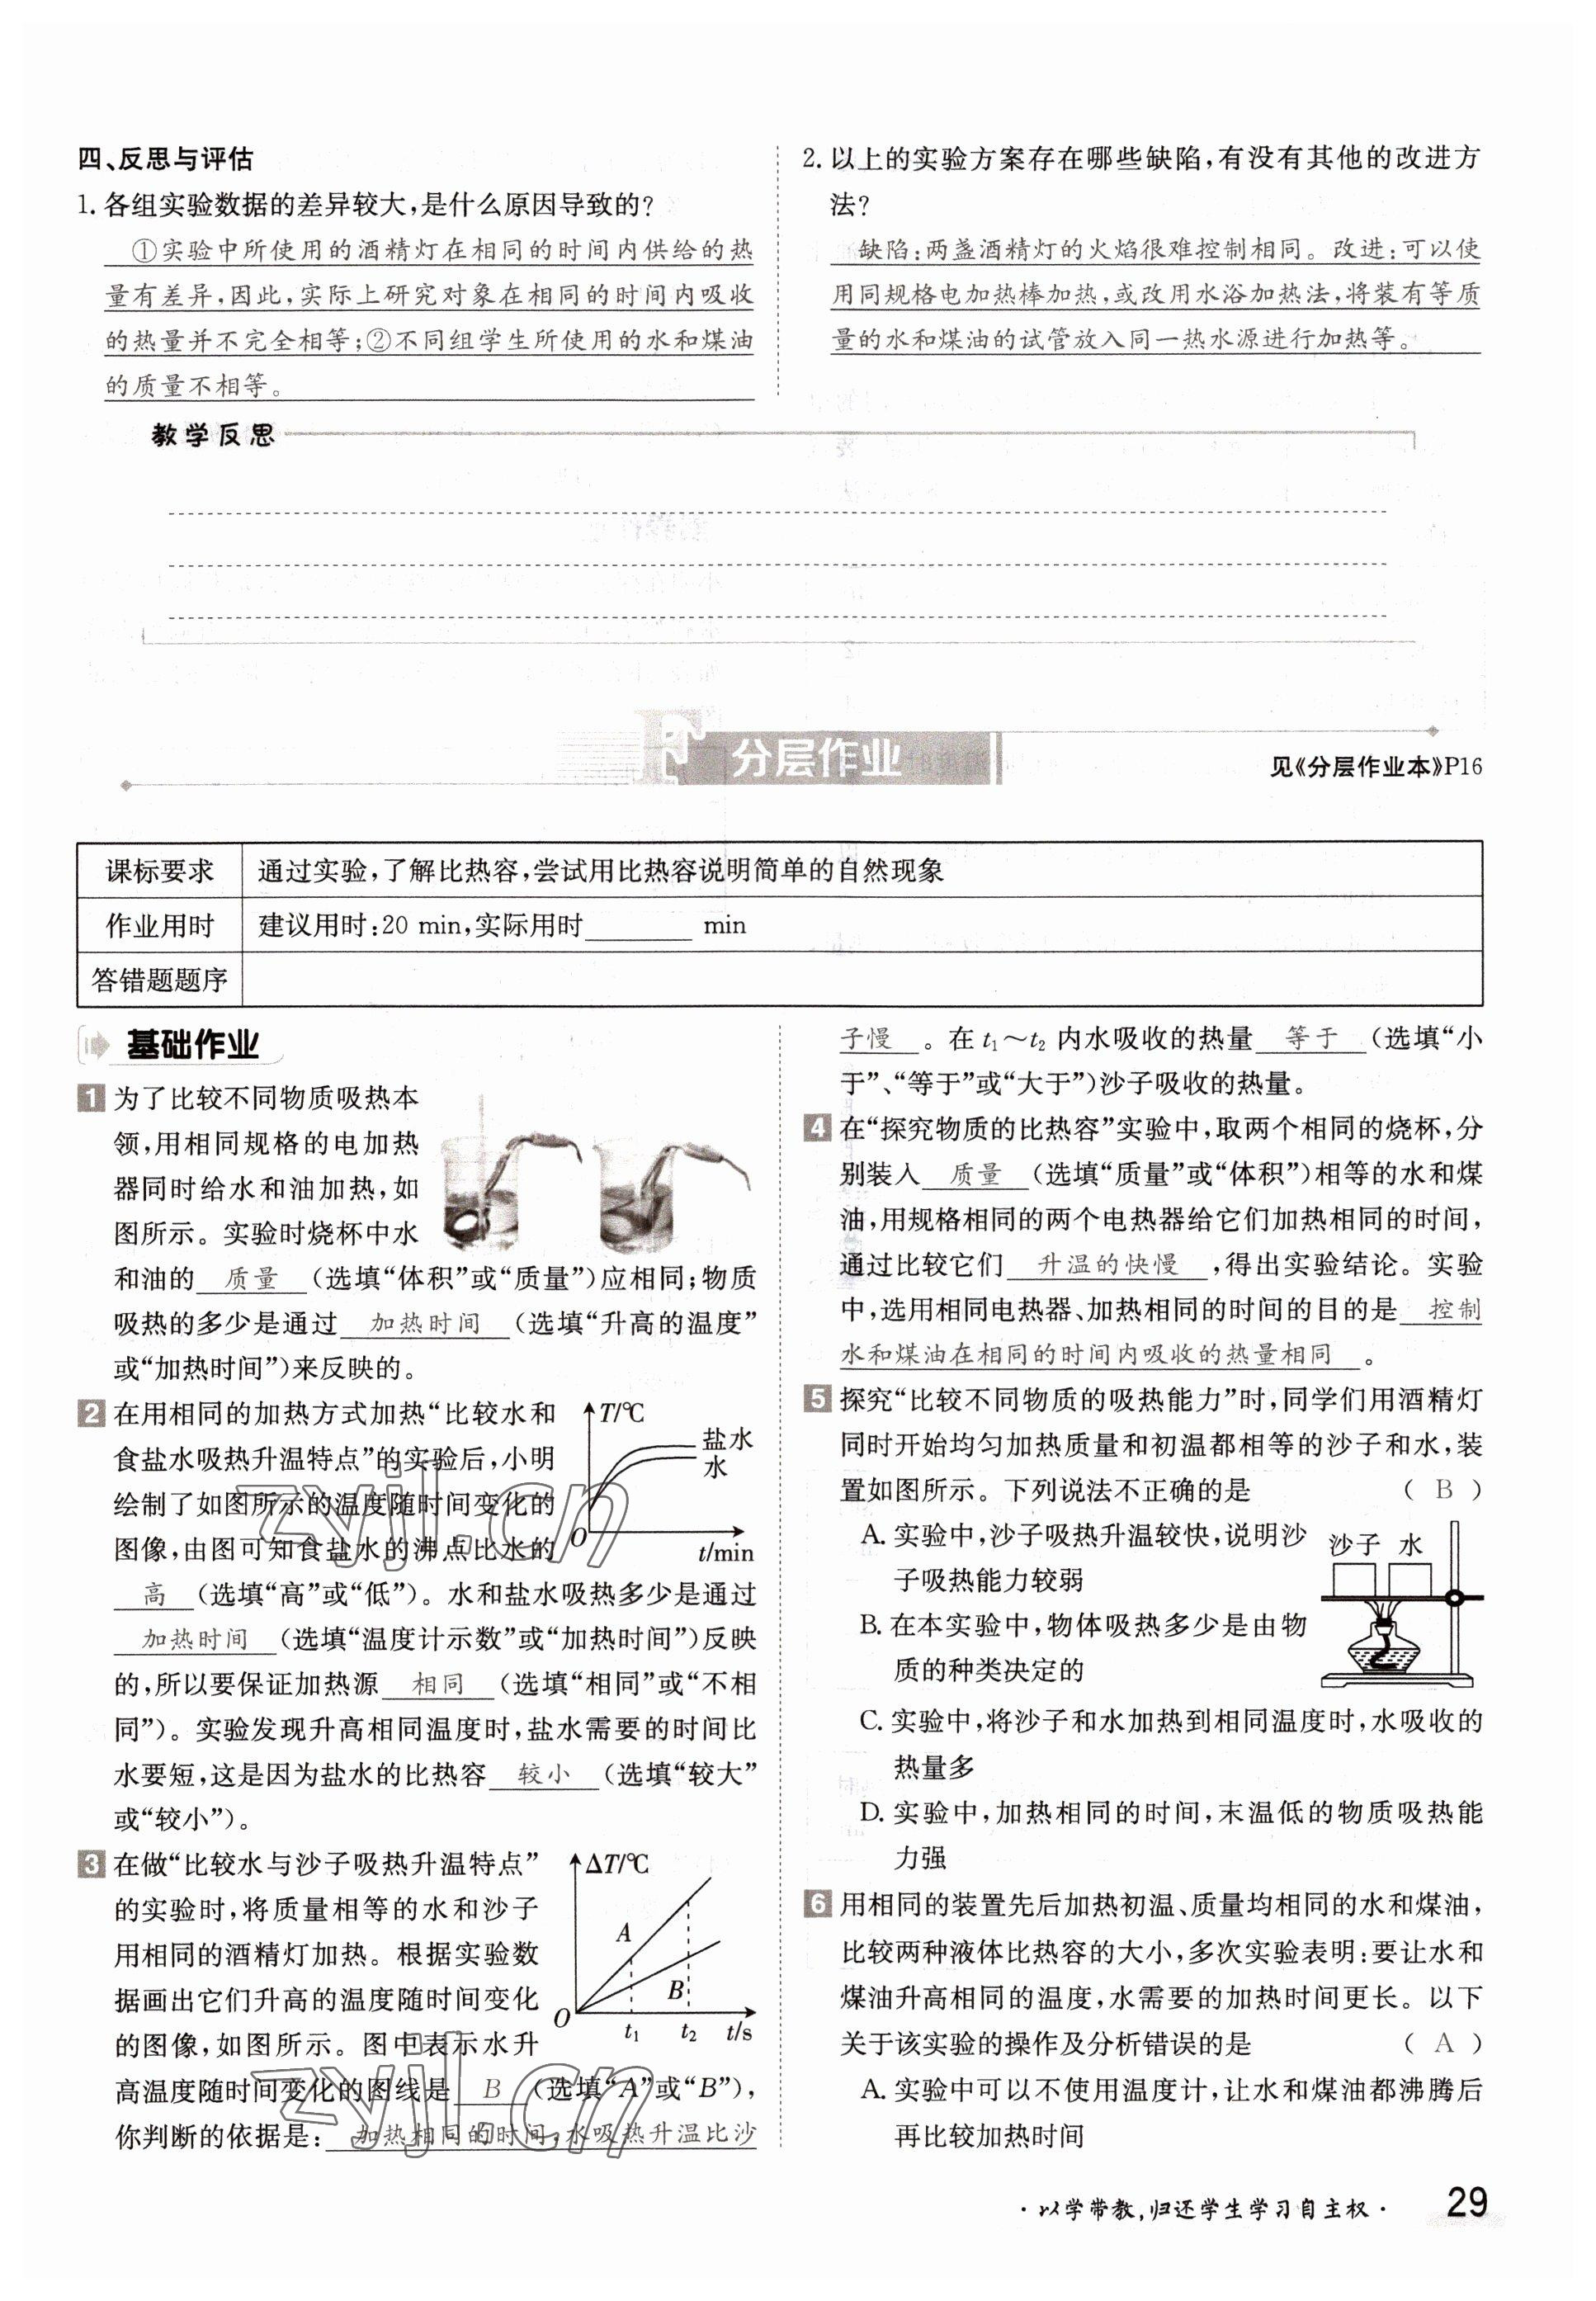 四、反思与评估
1. 各组实验数据的差异较大,是什么原因导致的?
①实验中所使用的酒精灯在相同的时间内供给的热
量有差异,因此,实际上研究对象在相同的时间内吸收
的热量并不完全相等;②不同组学生所使用的水和煤油
的质量不相等。
2. 以上的实验方案存在哪些缺陷,有没有其他的改进方
法?
缺陷:两盏酒精灯的火焰很难控制相同。改进:可以使
用同规格电加热棒加热,或改用水浴加热法,将装有等质
量的水和煤油的试管放入同一热水源进行加热等。
教学反思
分层作业
见《分层作业本》P16
课标要求 通过实验,了解比热容,尝试用比热容说明简单的自然现象
作业用时 建议用时:20 min,实际用时________ min
答错题题序
基础作业
1 为了比较不同物质吸热本
领,用相同规格的电加热
器同时给水和油加热,如
图所示。实验时烧杯中水
和油的 质量 (选填“体积”或“质量”)应相同;物质
吸热的多少是通过 加热时间 (选填“升高的温度”
或“加热时间”)来反映的。
2 在用相同的加热方式加热“比较水和
食盐水吸热升温特点”的实验后,小明
绘制了如图所示的温度随时间变化的
图像,由图可知食盐水的沸点比水的
高 (选填“高”或“低”)。水和盐水吸热多少是通过
加热时间 (选填“温度计示数”或“加热时间”)反映
的,所以要保证加热源 相同 (选填“相同”或“不相
同”)。实验发现升高相同温度时,盐水需要的时间比
水要短,这是因为盐水的比热容 较小 (选填“较大”
或“较小”)。
T/℃
盐水
水
O
t/min
3 在做“比较水与沙子吸热升温特点”
的实验时,将质量相等的水和沙子
用相同的酒精灯加热。根据实验数
据画出它们升高的温度随时间变化
的图像,如图所示。图中表示水升
高温度随时间变化的图线是 B (选填“A”或“B”),
你判断的依据是: 加热相同的时间,水吸热升温比沙
ΔT/℃
A
B
O
t₁ t₂ t/s
子慢 。在 t₁～t₂ 内水吸收的热量 等于 (选填“小
于”、“等于”或“大于”)沙子吸收的热量。
4 在“探究物质的比热容”实验中,取两个相同的烧杯,分
别装入 质量 (选填“质量”或“体积”)相等的水和煤
油,用规格相同的两个电热器给它们加热相同的时间,
通过比较它们 升温的快慢 ,得出实验结论。实验
中,选用相同电热器、加热相同的时间的目的是 控制
水和煤油在相同的时间内吸收的热量相同 。
5 探究“比较不同物质的吸热能力”时,同学们用酒精灯
同时开始均匀加热质量和初温都相等的沙子和水,装
置如图所示。下列说法不正确的是 ( B )
A. 实验中,沙子吸热升温较快,说明沙
子吸热能力较弱
B. 在本实验中,物体吸热多少是由物
质的种类决定的
沙子 水
C. 实验中,将沙子和水加热到相同温度时,水吸收的
热量多
D. 实验中,加热相同的时间,末温低的物质吸热能
力强
6 用相同的装置先后加热初温、质量均相同的水和煤油,
比较两种液体比热容的大小,多次实验表明:要让水和
煤油升高相同的温度,水需要的加热时间更长。以下
关于该实验的操作及分析错误的是 ( A )
A. 实验中可以不使用温度计,让水和煤油都沸腾后
再比较加热时间
zyjl.cn
zyjl.cn
·以学带教,归还学生学习自主权·
29